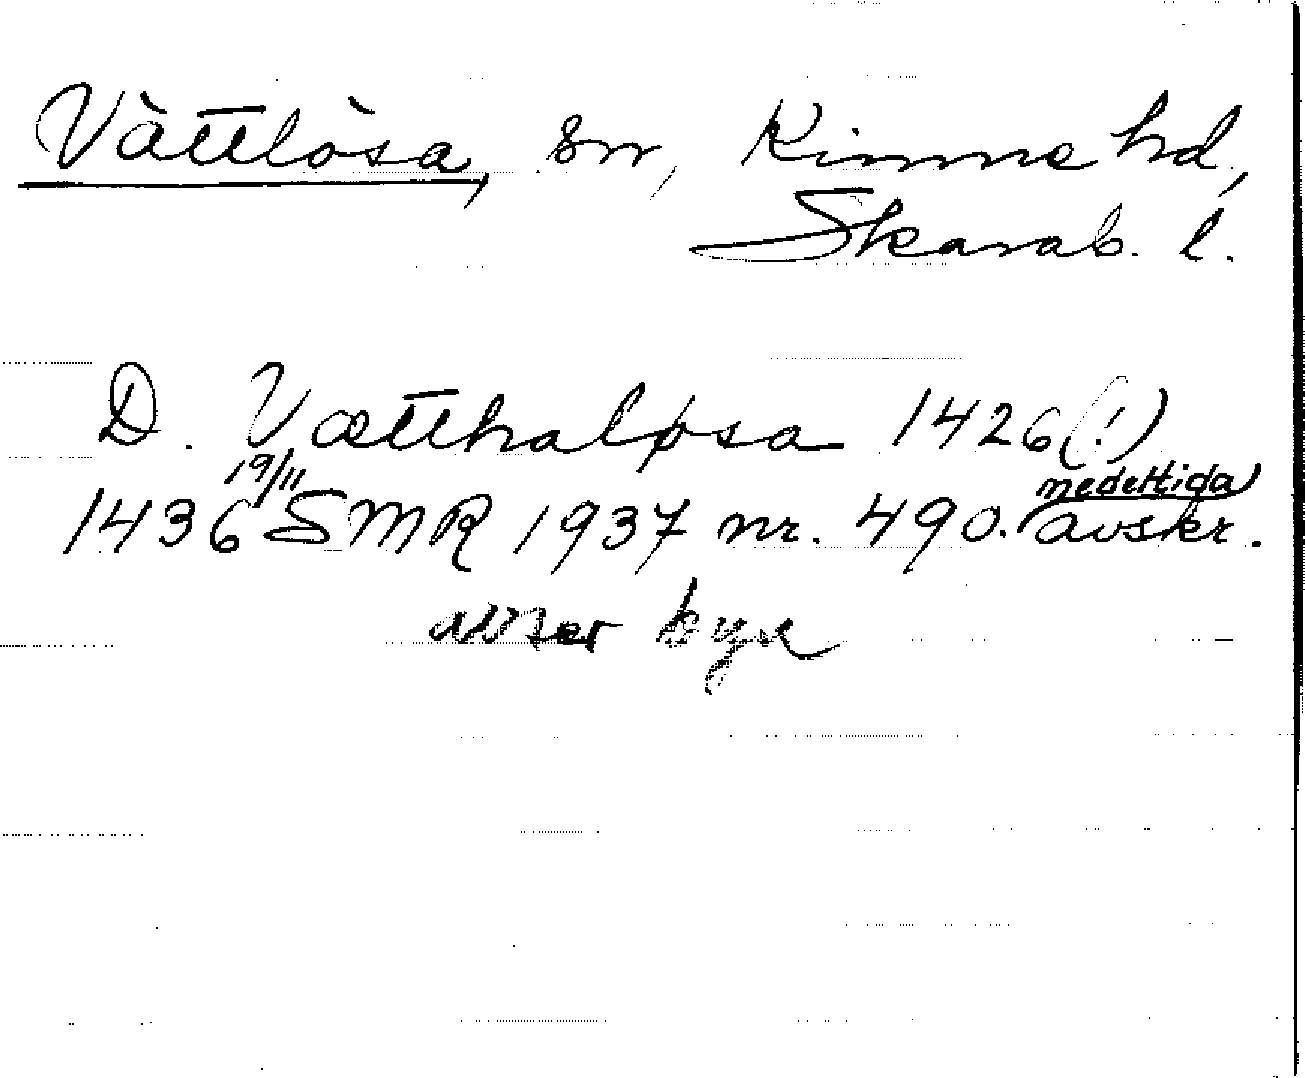 Vättlösa, sn, Kinne hd,
Skarab. l.
D. Vætthaløsa 1426(!)
1436 19/11 SMR 1937 nr. 490. medeltida avskr.
avser byn